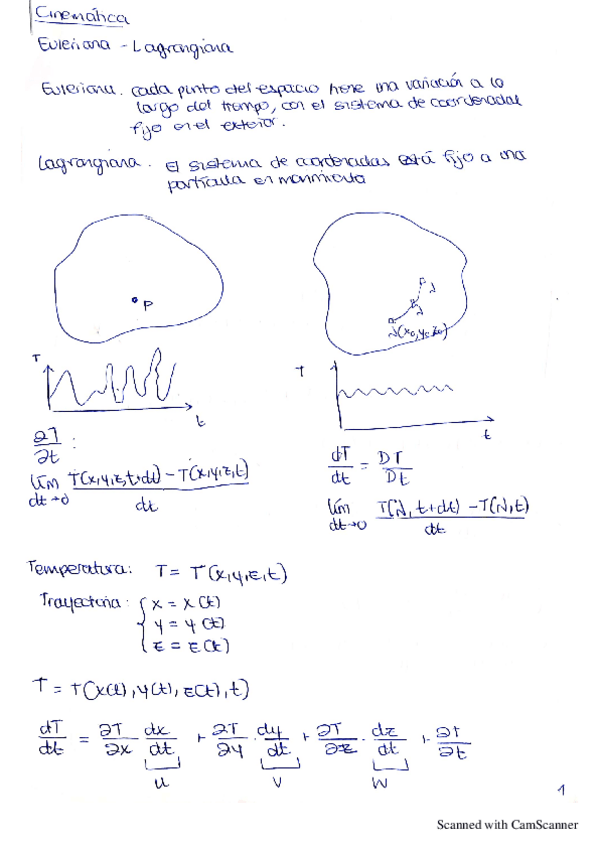 Cinemática
Euleriana - Lagrangiana
Euleriana. cada punto del espacio tiene una variación a lo
largo del tiempo, con el sistema de coordenadas
fijo en el exterior.
Lagrangiana. El sistema de coordenadas está fijo a una
partícula en movimiento
P
λ
λ(x₀,y₀,z₀)
T
t
T
t
∂T/∂t :
lím dt→0 (T(x,y,z,t+dt) - T(x,y,z,t))/dt
dT/dt = DT/Dt
lím dt→0 (T(λ, t+dt) - T(λ,t))/dt
Temperatura: T = T(x,y,z,t)
Trayectoria: { x = x(t)
y = y(t)
z = z(t)
T = T(x(t), y(t), z(t), t)
dT/dt = ∂T/∂x dx/dt + ∂T/∂y · dy/dt + ∂T/∂z · dz/dt + ∂T/∂t
u v w
1
Scanned with CamScanner